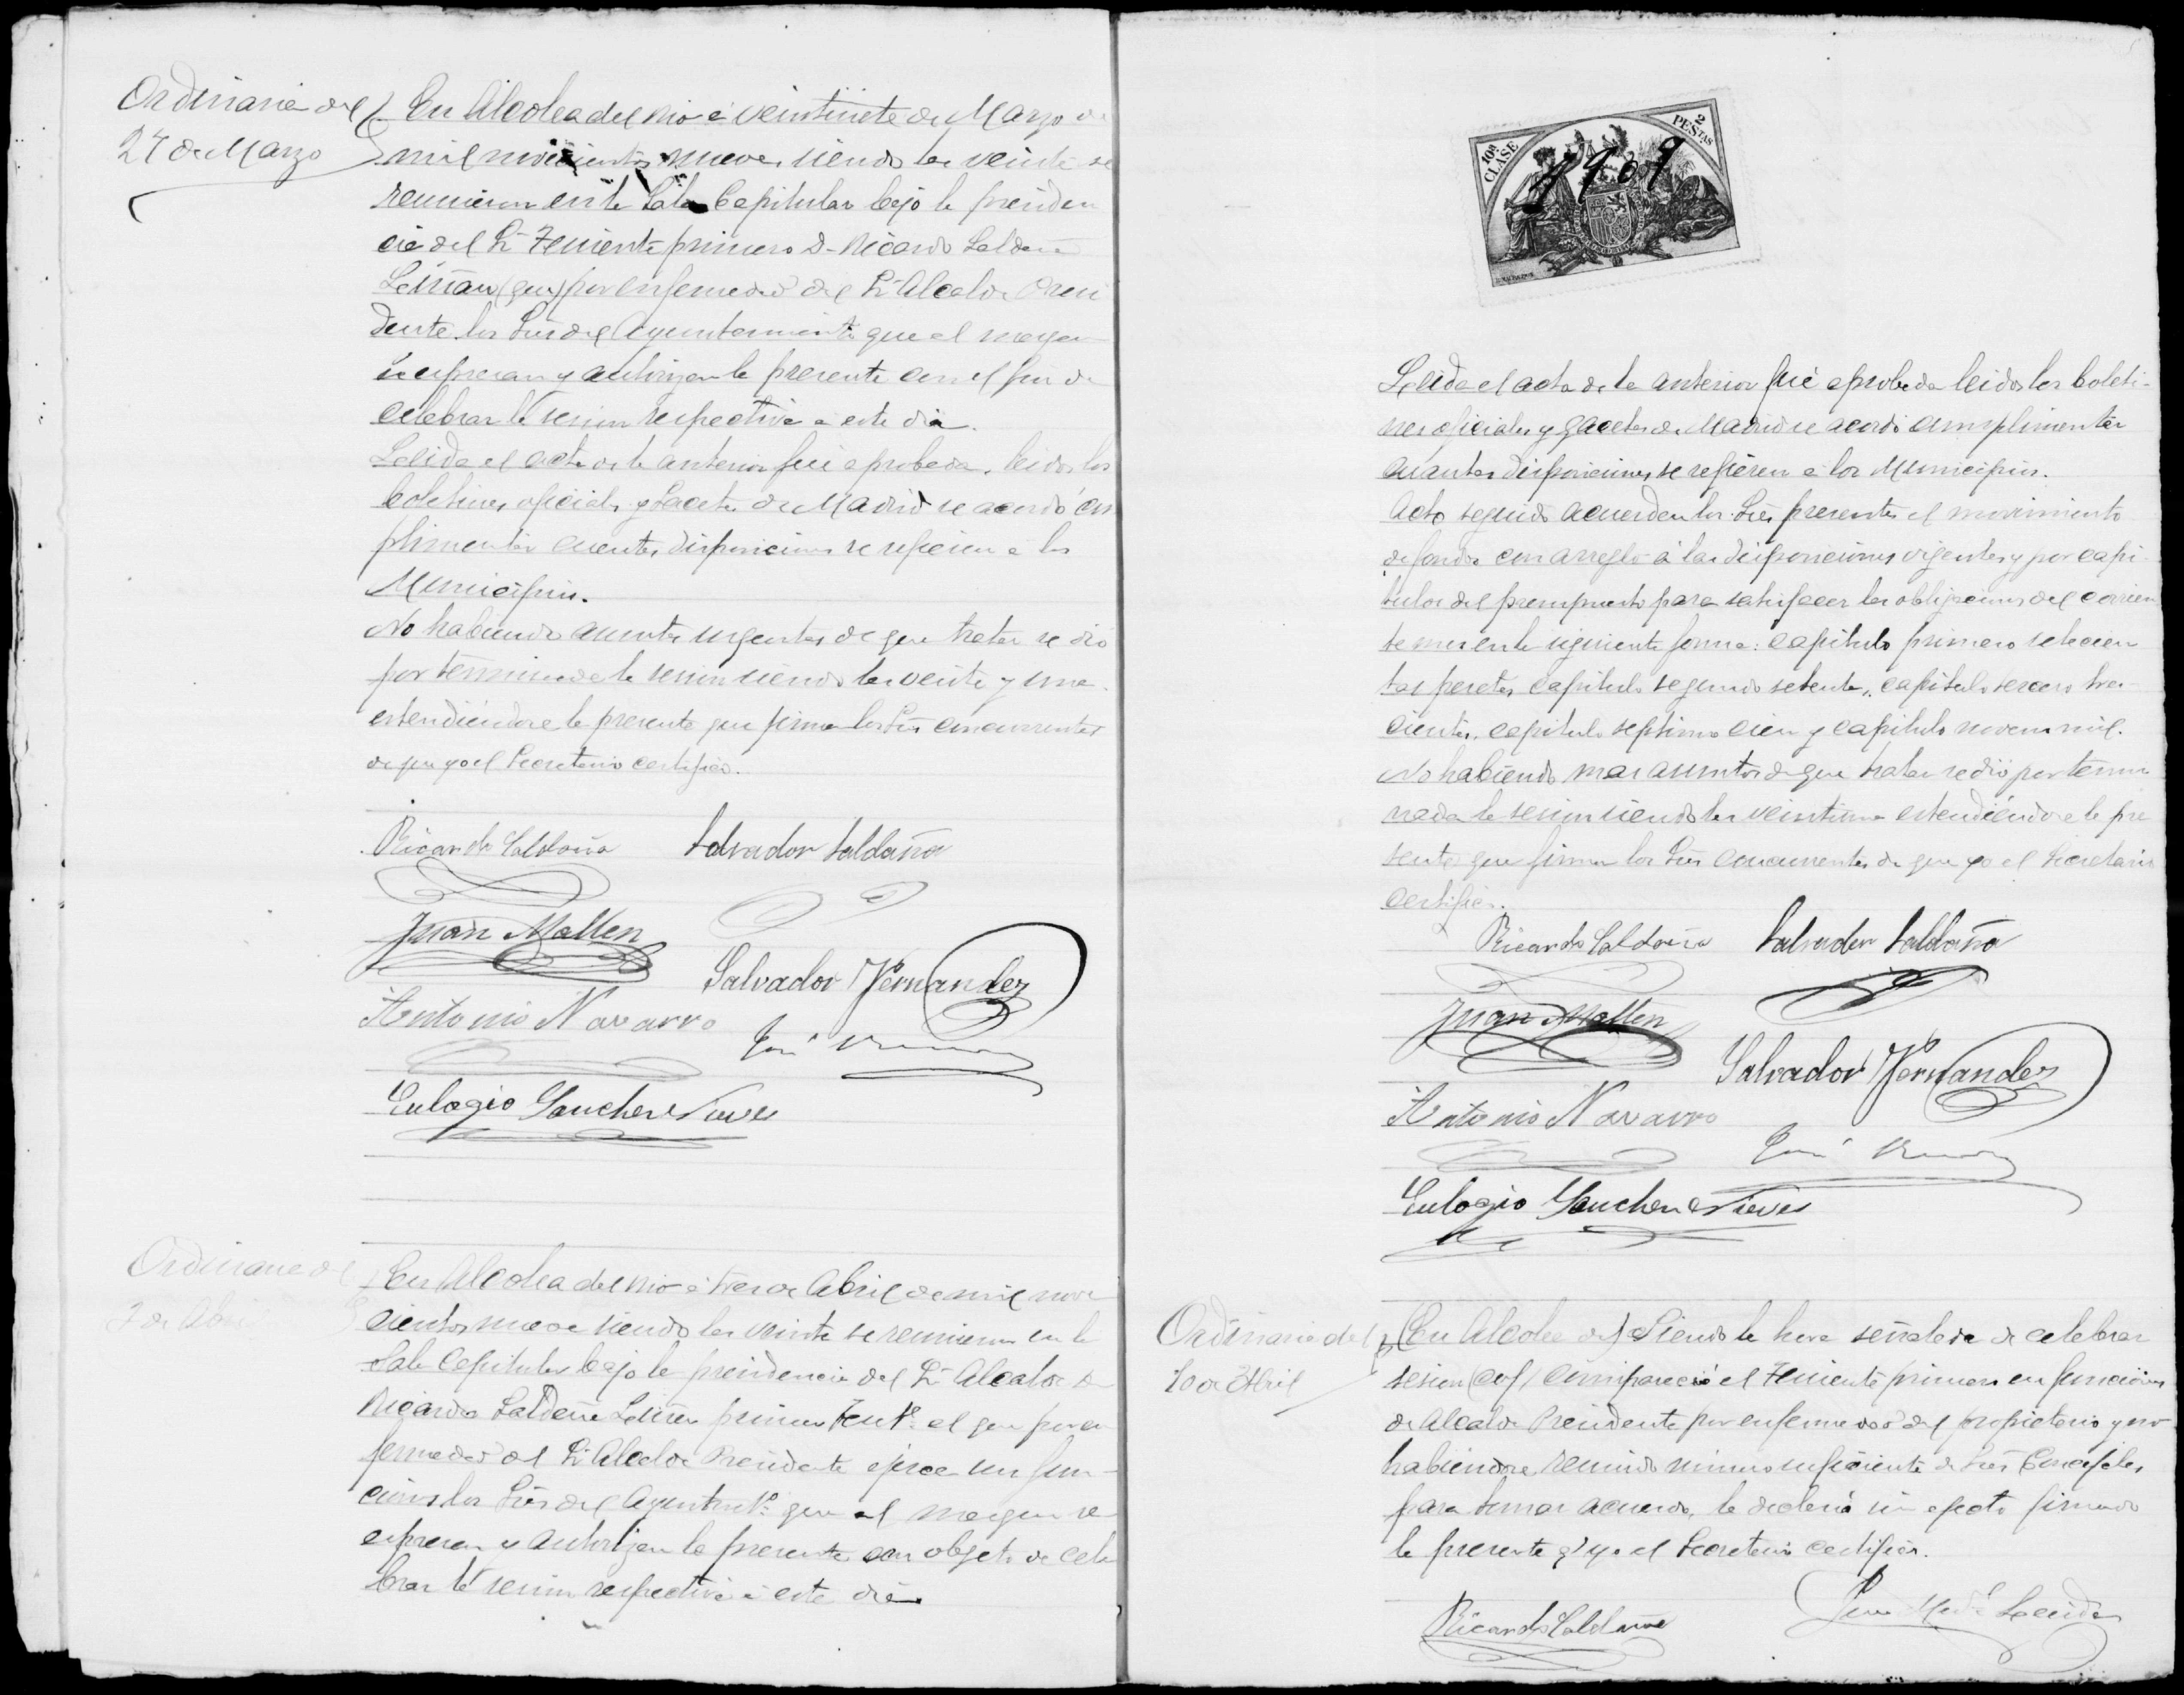 Ordinaria del
27 de Marzo
En Alcolea del Rio á veintisiete de Marzo de
mil novecientos nueve, siendo las veinte se
reunieron en la Sala Capitular bajo la presiden
cia del Sr Teniente primero D. Ricardo Saldaña
(que) por enfermedad del Sr Alcalde Presi
dente los Sres del Ayuntamiento que al margen
se espresan y autorizan la presente con el fin de
celebrar la sesion respectiva á este dia.
Leida el acta de la anterior fué aprobada, leidos los
boletines oficiales y Gaceta de Madrid se acordó cum
plimentar cuantas disposiciones se refieren á los
Municipios.
No habiendo asuntos urgentes de que tratar se dió
por terminada la sesion siendo las veinte y una
estendiéndose la presente que firman los Sres concurrentes
de que yo el Secretario certifico.
Ricardo Saldaña Salvador Saldaña
Juan Mallen
Salvador Fernandez
Antonio Navarro
José
Eulogio Sanchez Nieves
Ordinaria del
3 de Abril
En Alcolea del Rio á tres de Abril de mil nove
cientos nueve siendo las veinte se reunieron en la
Sala Capitular bajo la presidencia del Sr Alcalde D.
Ricardo Saldaña primer Tente. el que por en
fermedad del Sr Alcalde Presidente ejerce sus fun-
ciones los Sres del Ayuntmto. que al margen se
espresan y autorizan la presente con objeto de cele
brar la sesion respectiva á este dia.
10ª CLASE
2 PESTAS
1909
Leida el acta de la anterior fué aprobada leidos los boleti-
nes oficiales y gacetas de Madrid se acordó cumplimentar
cuantas disposiciones se refieren á los Municipios.
Acto seguido acuerdan los Sres presentes el movimiento
de fondos con arreglo á las disposiciones vigentes y por capi-
tulos del presupuesto para satisfacer las obligaciones del corrien
te mes en la siguiente forma: capitulo primero setecien
tas pesetas, capitulo segundo setenta, capitulo tercero tres-
cientas, capitulo septimo cien y capitulo noveno mil.
No habiendo mas asuntos de que tratar se dió por termi
nada la sesion siendo las veintiuna estendiéndose la pre
sente que firman los Sres concurrentes de que yo el Secretario
certifico.
Ricardo Saldaña Salvador Saldaña
Juan Mallen
Salvador Fernandez
Antonio Navarro
José
Eulogio Sanchez Nieves
Ordinaria del
10 de Abril
(En Alcolea del) Siendo la hora señalada de celebrar
sesion compareció el Teniente primero en funciones
de Alcalde Presidente por enfermedad del propietario y no
habiendose reunido número suficiente de Sres Concejales
para tomar acuerdo, la declaró sin efecto firmando
la presente q' yo el Secretario certifico.
Ricardo Saldaña